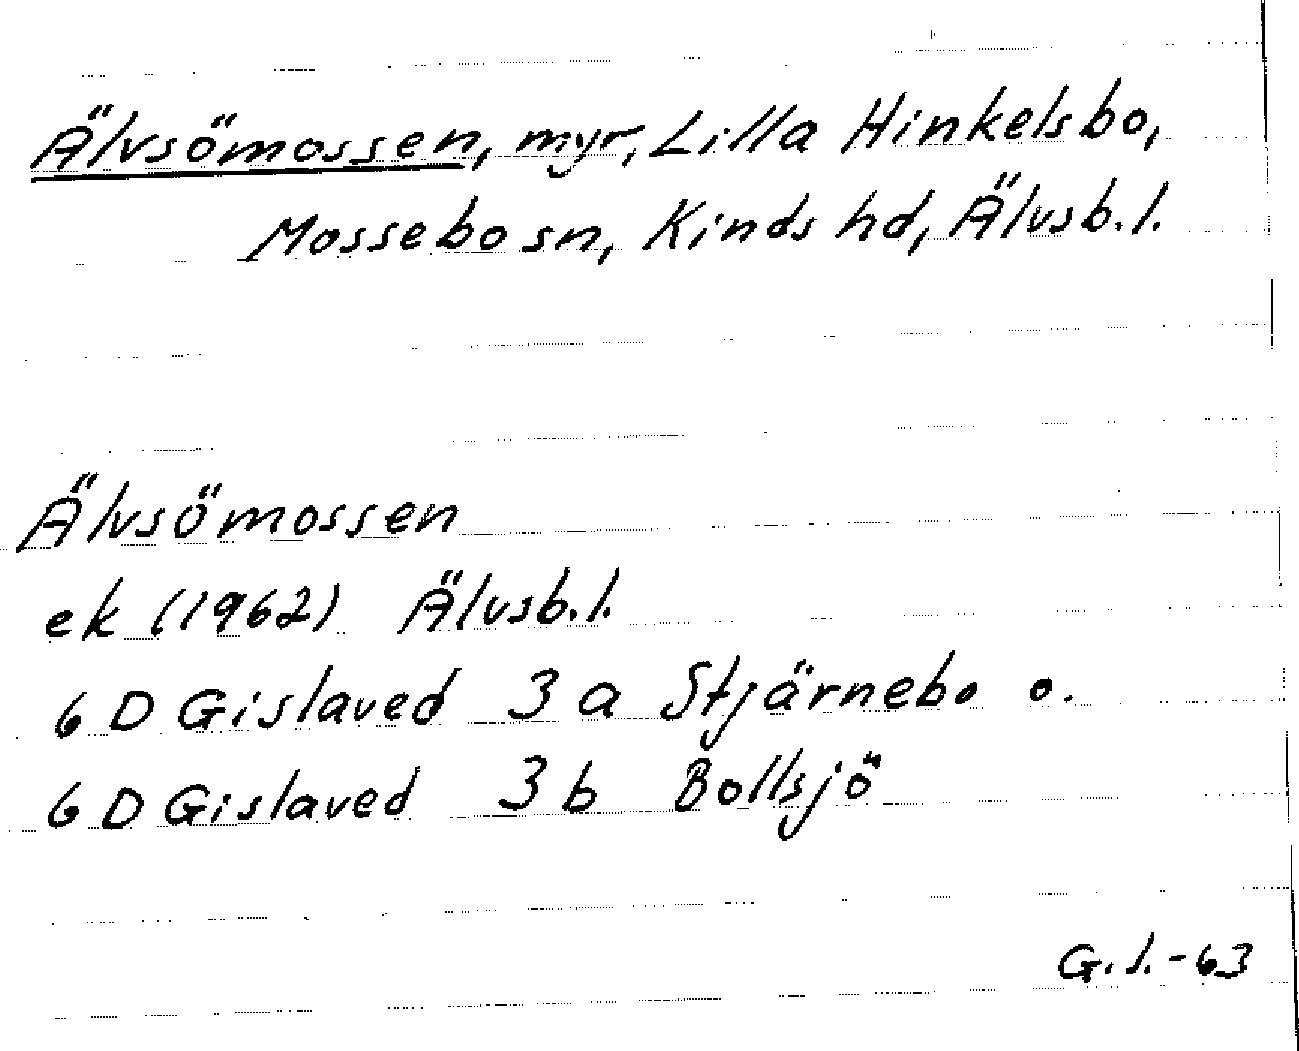 Älvsömossen, myr, Lilla Hinkelsbo,
Mossebo sn, Kinds hd, Älvsb. l.
Älvsömossen
ek (1962) Älvsb. l.
6 D Gislaved 3 a Stjärnebo o.
6 D Gislaved 3 b Bollsjö
G. l. - 63